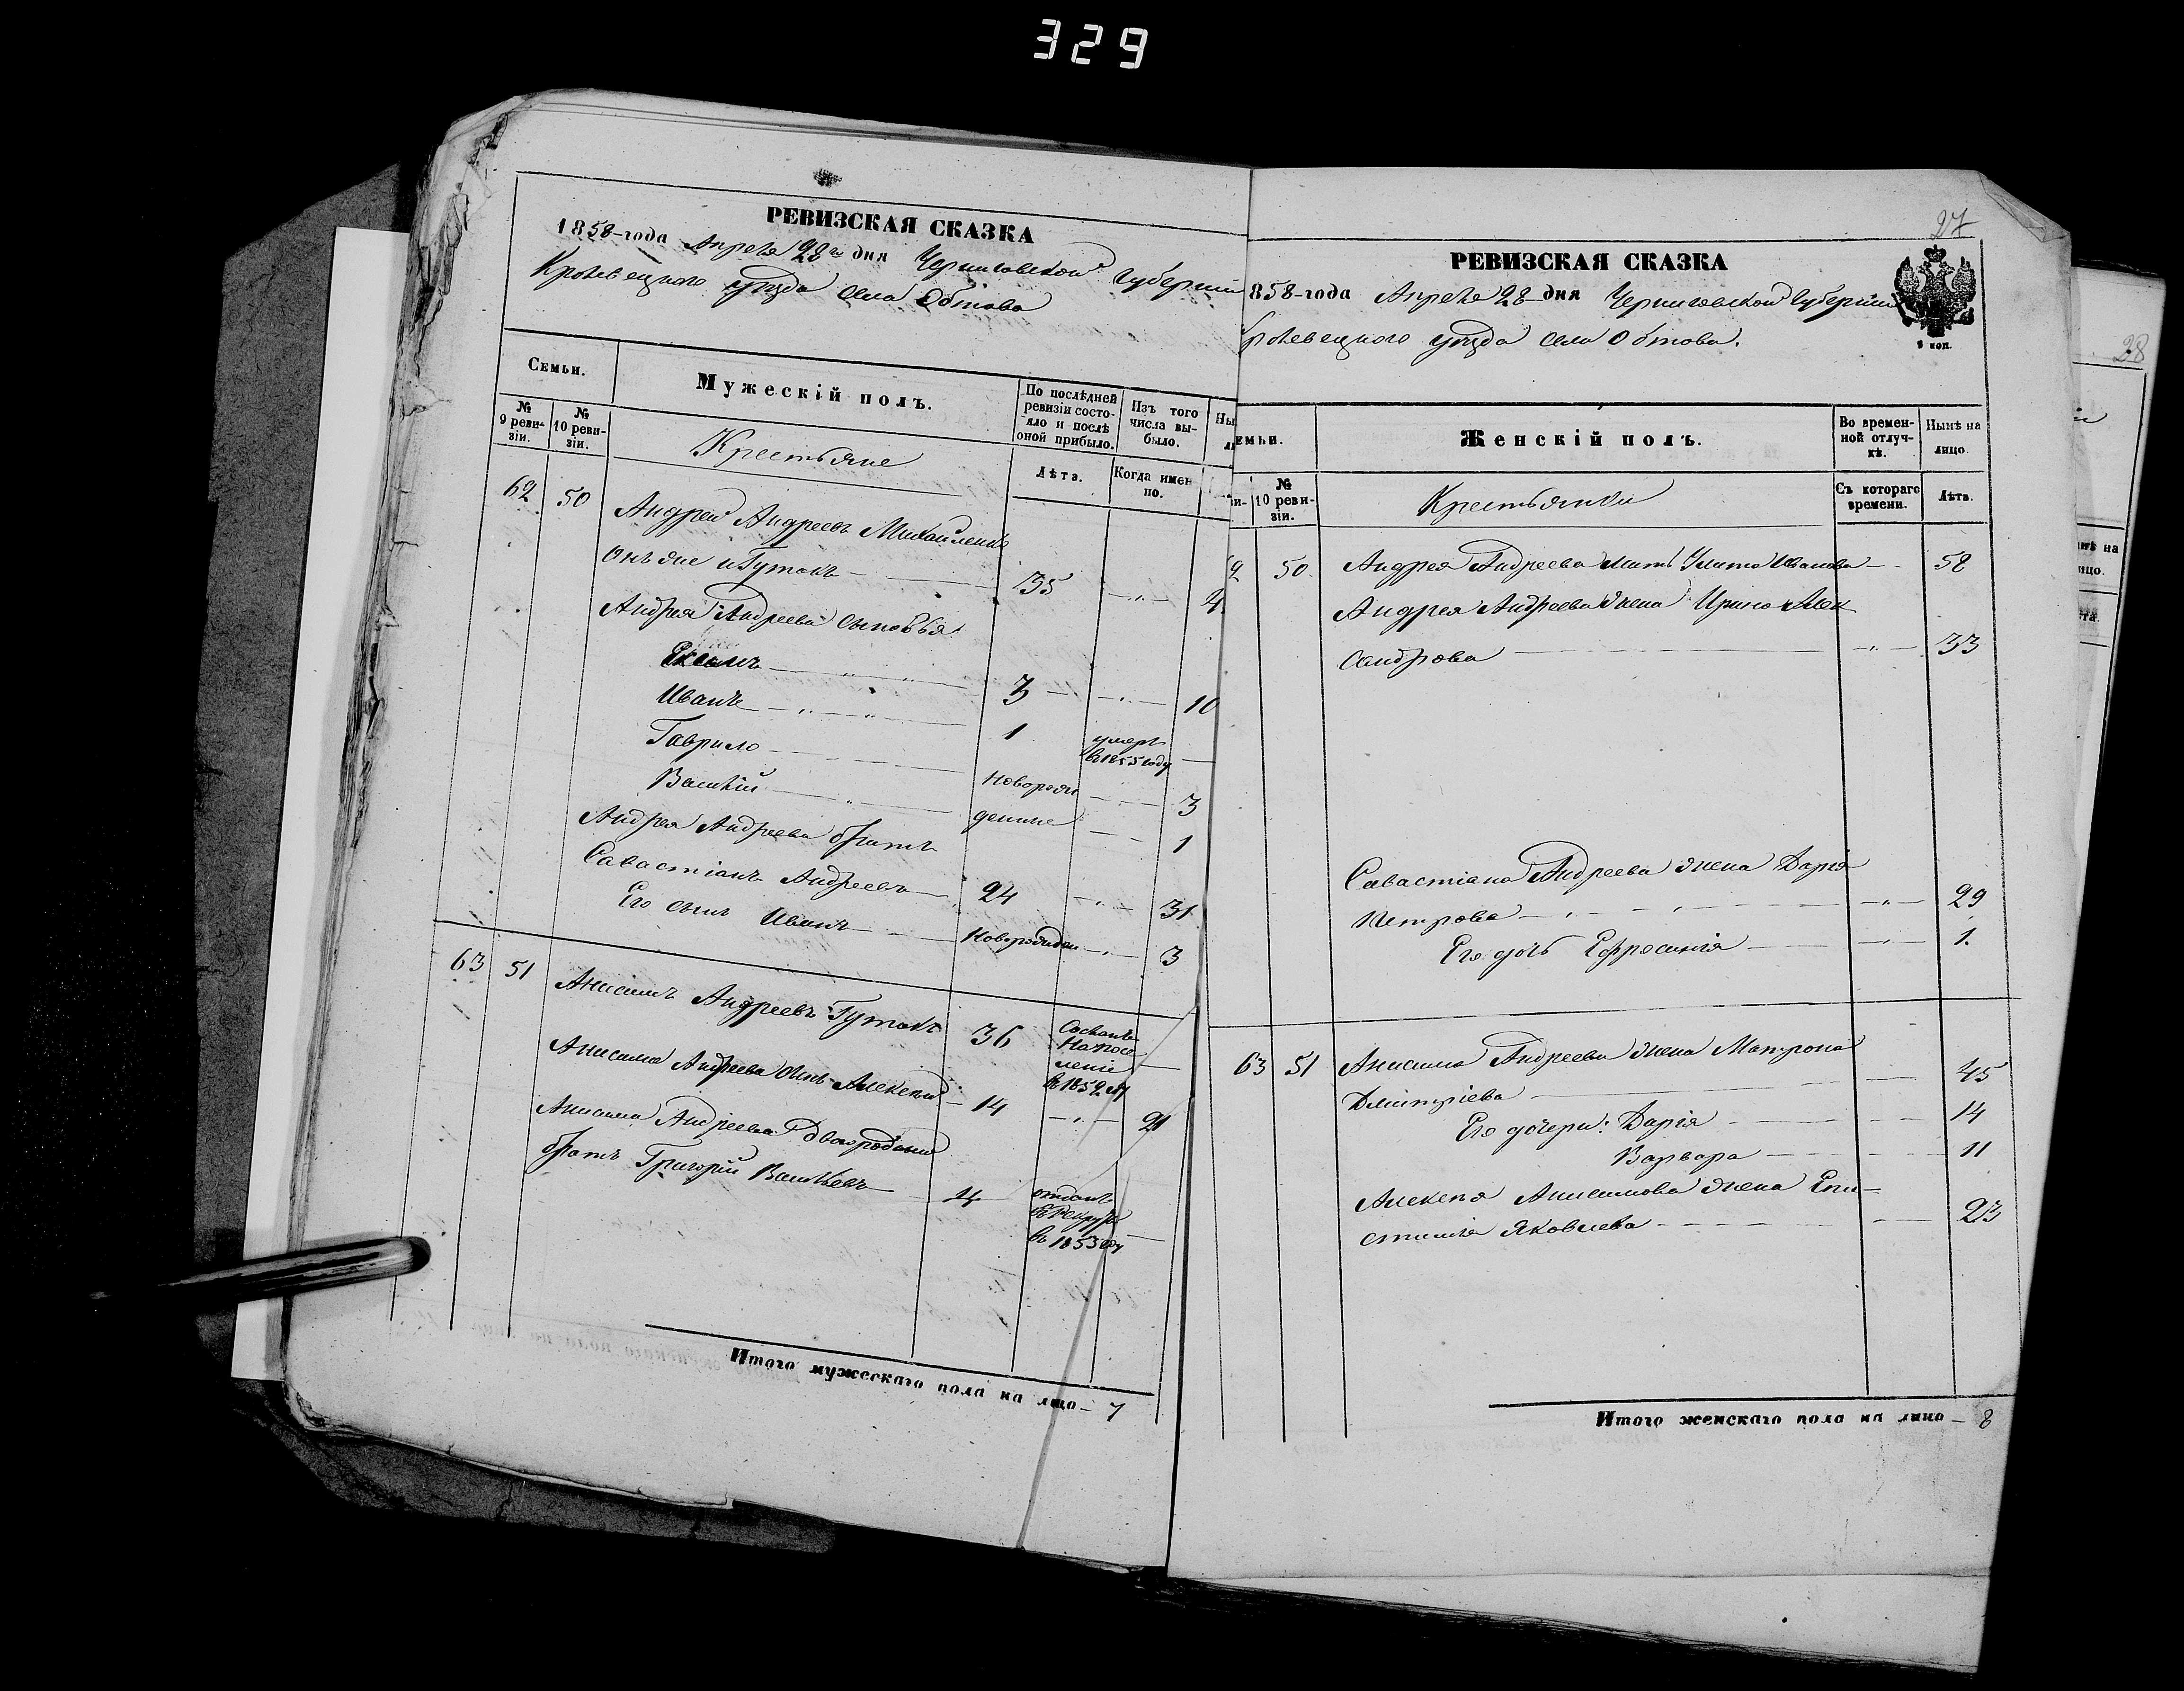 329
РЕВИЗСКАЯ СКАЗКА
1858-года Апреля 28го дня Черниговской Губерніи
Кролевецкого уѣзда села Обтова
Семьи.
Мужескій полъ.
По послѣдней ревизіи состояло и послѣ оной прибыло.
Изъ того числа выбыло.
Ны
л
№ 9 ревизіи.
№ 10 ревизіи.
Крестьяне
Лѣта.
Когда именно.
62 50 Андрей Андреевъ Михайленко
онъ же и Гутокъ 35 4
Андрея Андреева сыновья
3 10
Иванъ 1 умеръ въ 1855 году
Гаврило новорож 3
Василій денные 1
Андрея Андреева братъ
Савастіанъ Андреевъ 24 31
Его сынъ Иванъ новорожден 3
63 51 Анисимъ Андреевъ Гутокъ 36 Сосланъ на поселеніе въ 1852 г
Анисима Андреева сынъ Алексей 14 21
Анисима Андреева двоюродный
братъ Григорій Васильевъ 4 отданъ въ рекруты въ 1853 году
Итого мужескаго пола на лицо 7
27
РЕВИЗСКАЯ СКАЗКА
858-года Апреля 28 дня Черниговской Губерніи
ролевецкого уѣзда села Обтова.
1 коп.
емьи.
Женскій полъ.
Во временной отлучкѣ.
Нынѣ на лицо.
и-
№ 10 ревизіи.
Крестьянки
Съ котораго времени.
Лѣта.
2 50 Андрея Андреева мать Улита Иванова 58
Андрея Андреева жена Ирина Алек
сандрова 33
Савастіана Андреева жена Дарія
Петрова 29
Его дочь Ефросинія 1.
63 51 Анисима Андреева жена Матрона
Дмитріева 45
Его дочери: Дарія 14
Варвара 11
Алексея Анисимова жена Епи-
стимія Яковлева 23
Итого женскаго пола на лицо 8
28